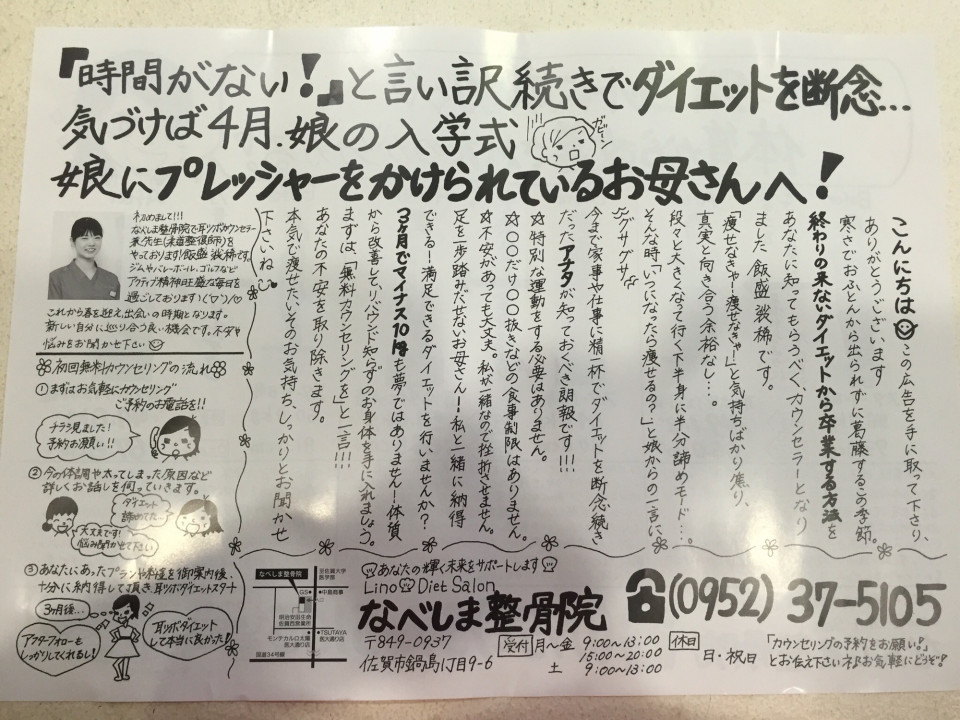 『時間がない！』と言い訳続きでダイエットを断念…
気づけば4月.娘の入学式
ガビーン
娘にプレッシャーをかけられているお母さんへ！
こんにちは
この広告を手に取って下さり、
ありがとうございます
寒さでおふとんから出られずに葛藤するこの季節。
終わりの来ないダイエットから卒業する方法を
あなたに知ってもらうべく、カウンセラーとなり
ました飯盛 稀です。
「痩せなきゃ！痩せなきゃ！」と気持ちばかり焦り、
真実と向き合う余裕なし…。
段々と大きくなって行く下半身に半分諦めモード…。
そんな時「いつになったら痩せるの？」と娘からの一言に、
グサグサ
今まで家事や仕事に精一杯でダイエットを断念続き
だったアナタが知っておくべき朗報です!!!
☆特別な運動をする必要はありません。
☆○○だけ○○抜きなどの食事制限はありません。
☆不安があっても大丈夫。私が一緒なので挫折させません。
足を一歩踏みだせないお母さん！私と一緒に納得
できる！満足できるダイエットを行いませんか？
3ヶ月でマイナス10kgも夢ではありません！体質
から改善して、リバウンド知らずのお身体を手に入れましょう。
まずは、「無料カウンセリングを」と一言!!!
あなたの不安を取り除きます。
本気で痩せたい！そのお気持ち、しっかりとお聞かせ
下さいね
初めまして!!!
なべしま整骨院で耳ツボカウンセラー
兼先生(柔道整復師)を
やっております！飯盛 稀です
ジムやバレーボール、ゴルフなど
アクティブ精神旺盛な毎日を
過ごしております
これから春を迎え、出会いの時期となります。
新しい自分に巡り合う良い機会です。不安や
悩みをお聞かせ下さい
初回無料カウンセリングの流れ
①まずはお気軽にカウンセリング
ご予約のお電話を!!
チラシ見ました！
予約お願い!!
②今の体調や太ってしまった原因など
詳しくお話しを伺っていきます。
ダイエット
諦めてた…
大丈夫です！
悩み聞かせて下さい
③あなたにあったプランや料金を御案内後、
十分に納得して頂き、耳ツボダイエットスタート
3ヶ月後…
アフターフォローも
しっかりしてくれるし！
耳ツボダイエット
して本当に良かった！
なべしま整骨院
至佐賀大学
医学部
GS
中島商事
明治安田生命
佐賀西営業所
モンテカルロ太陽
医大通り店
TSUTAYA
医大通り店
国道34号線
あなたの輝く未来をサポートします
Lino Diet Salon
なべしま整骨院
〒849-0937
佐賀市鍋島1丁目9-6
(0952) 37-5105
受付 月〜金 9:00〜13:00
15:00〜20:00
土 9:00〜13:00
休日 日・祝日
「カウンセリングの予約をお願い！」
とお伝え下さいネ！お気軽にどうぞ！